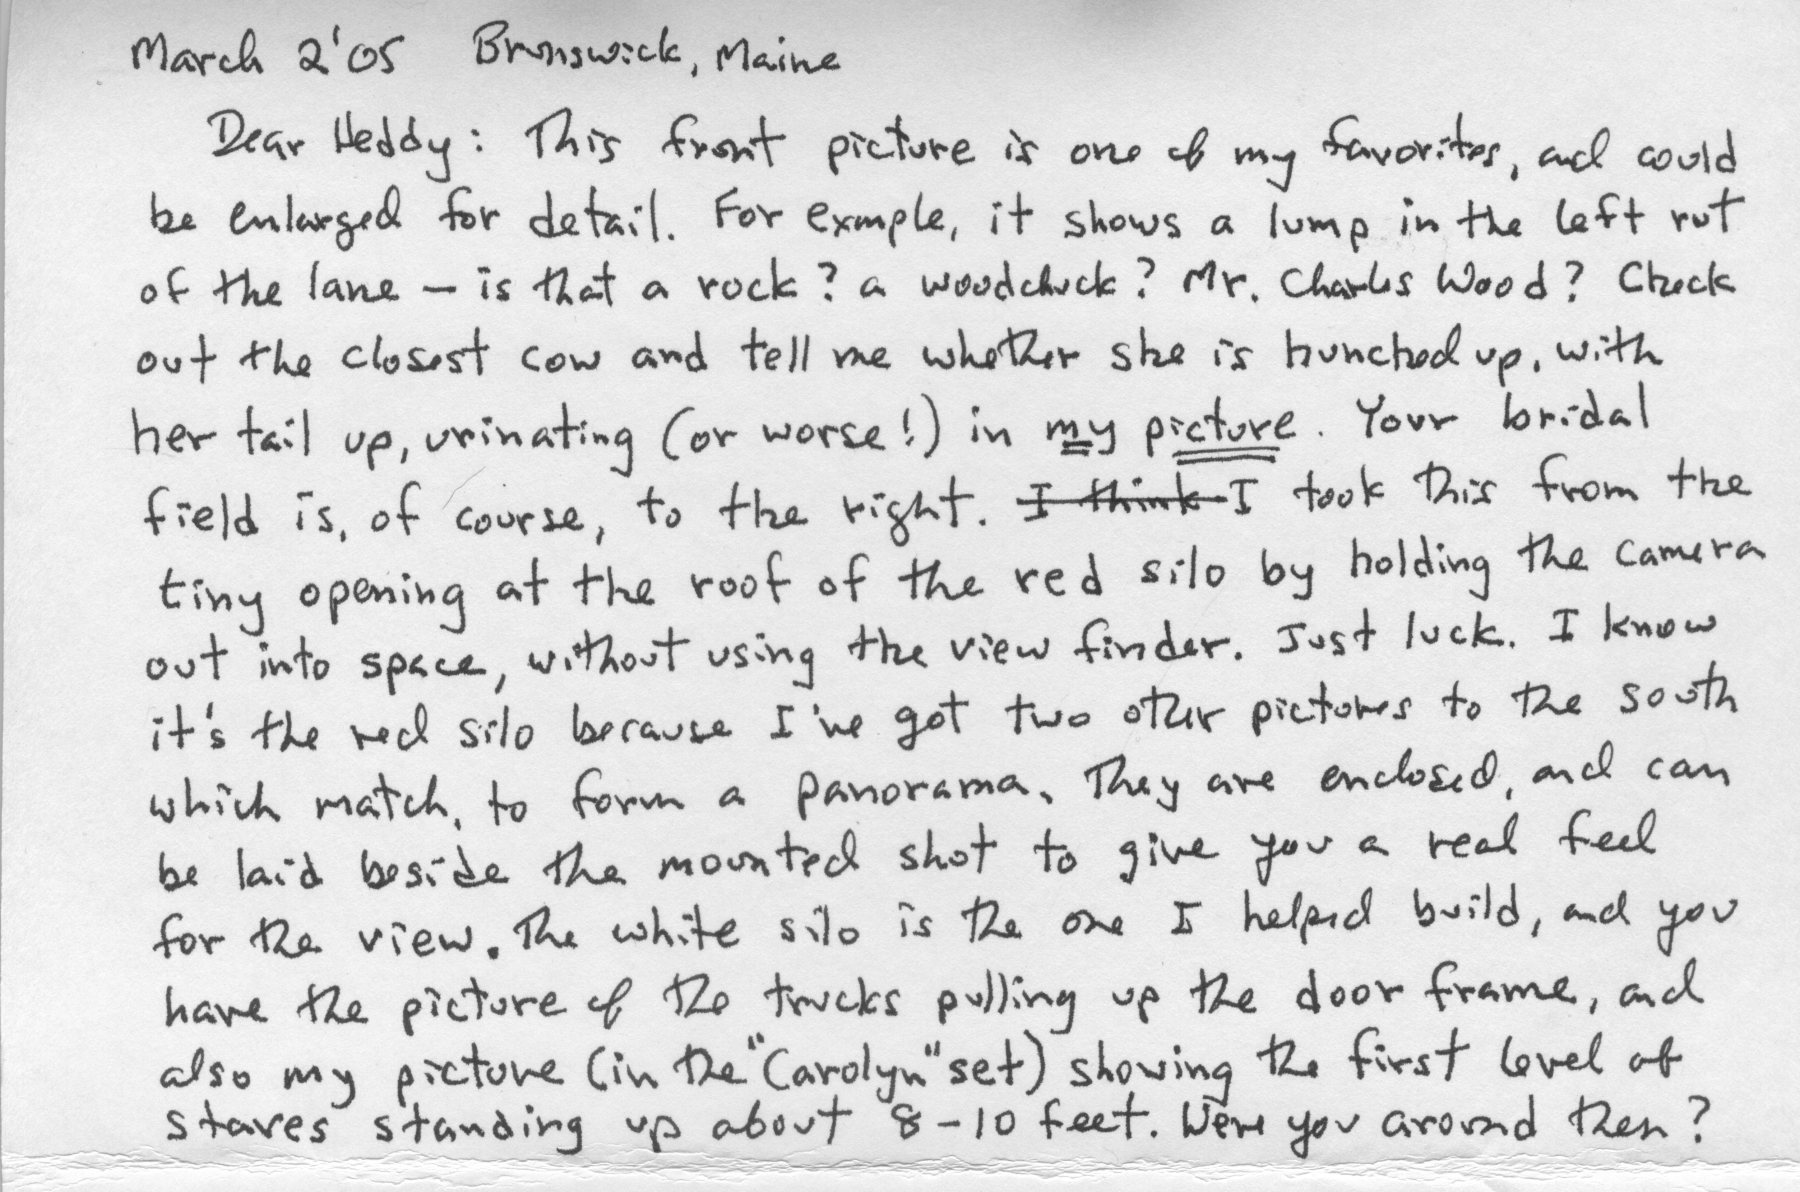 March 2'05 Brunswick, Maine
Dear Heddy: This front picture is one of my favorites, and could
be enlarged for detail. For exmple, it shows a lump in the left rut
of the lane – is that a rock? a woodchuck? Mr. Charles Wood? Check
out the closest cow and tell me whether she is hunched up, with
her tail up, urinating (or worse!) in my picture. Your bridal
field is, of course, to the right. I think I took this from the
tiny opening at the roof of the red silo by holding the camera
out into space, without using the view finder. Just luck. I know
it's the red silo because I've got two other pictures to the south
which match, to form a panorama. They are enclosed, and can
be laid beside the mounted shot to give you a real feel
for the view. The white silo is the one I helped build, and you
have the picture of the trucks pulling up the door frame, and
also my picture (in the "Carolyn" set) showing the first level of
staves standing up about 8-10 feet. Were you around then?